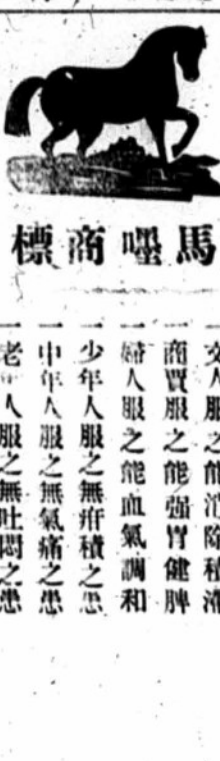 馬嘿商標
一文人服之能消除積滯
一商賈服之能强胃健脾
一婦人服之能血氣調和
一少年人服之無疳積之患
一中年人服之無氣痛之患
一老年人服之無吐悶之患